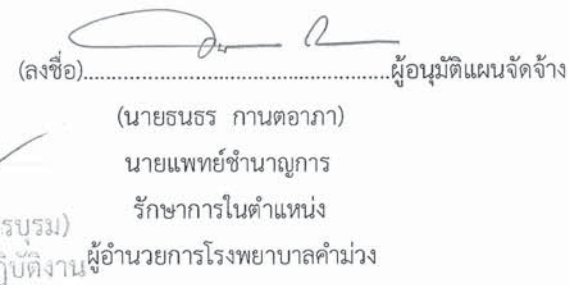 (ลงชื่อ)..................................................ผู้อนุมัติแผนจัดจ้าง
(นายธนธร กานตอาภา)
นายแพทย์ชำนาญการ
รักษาการในตำแหน่ง
รบุรม)
ผู้อำนวยการโรงพยาบาลคำม่วง
ฏิบัติงาน